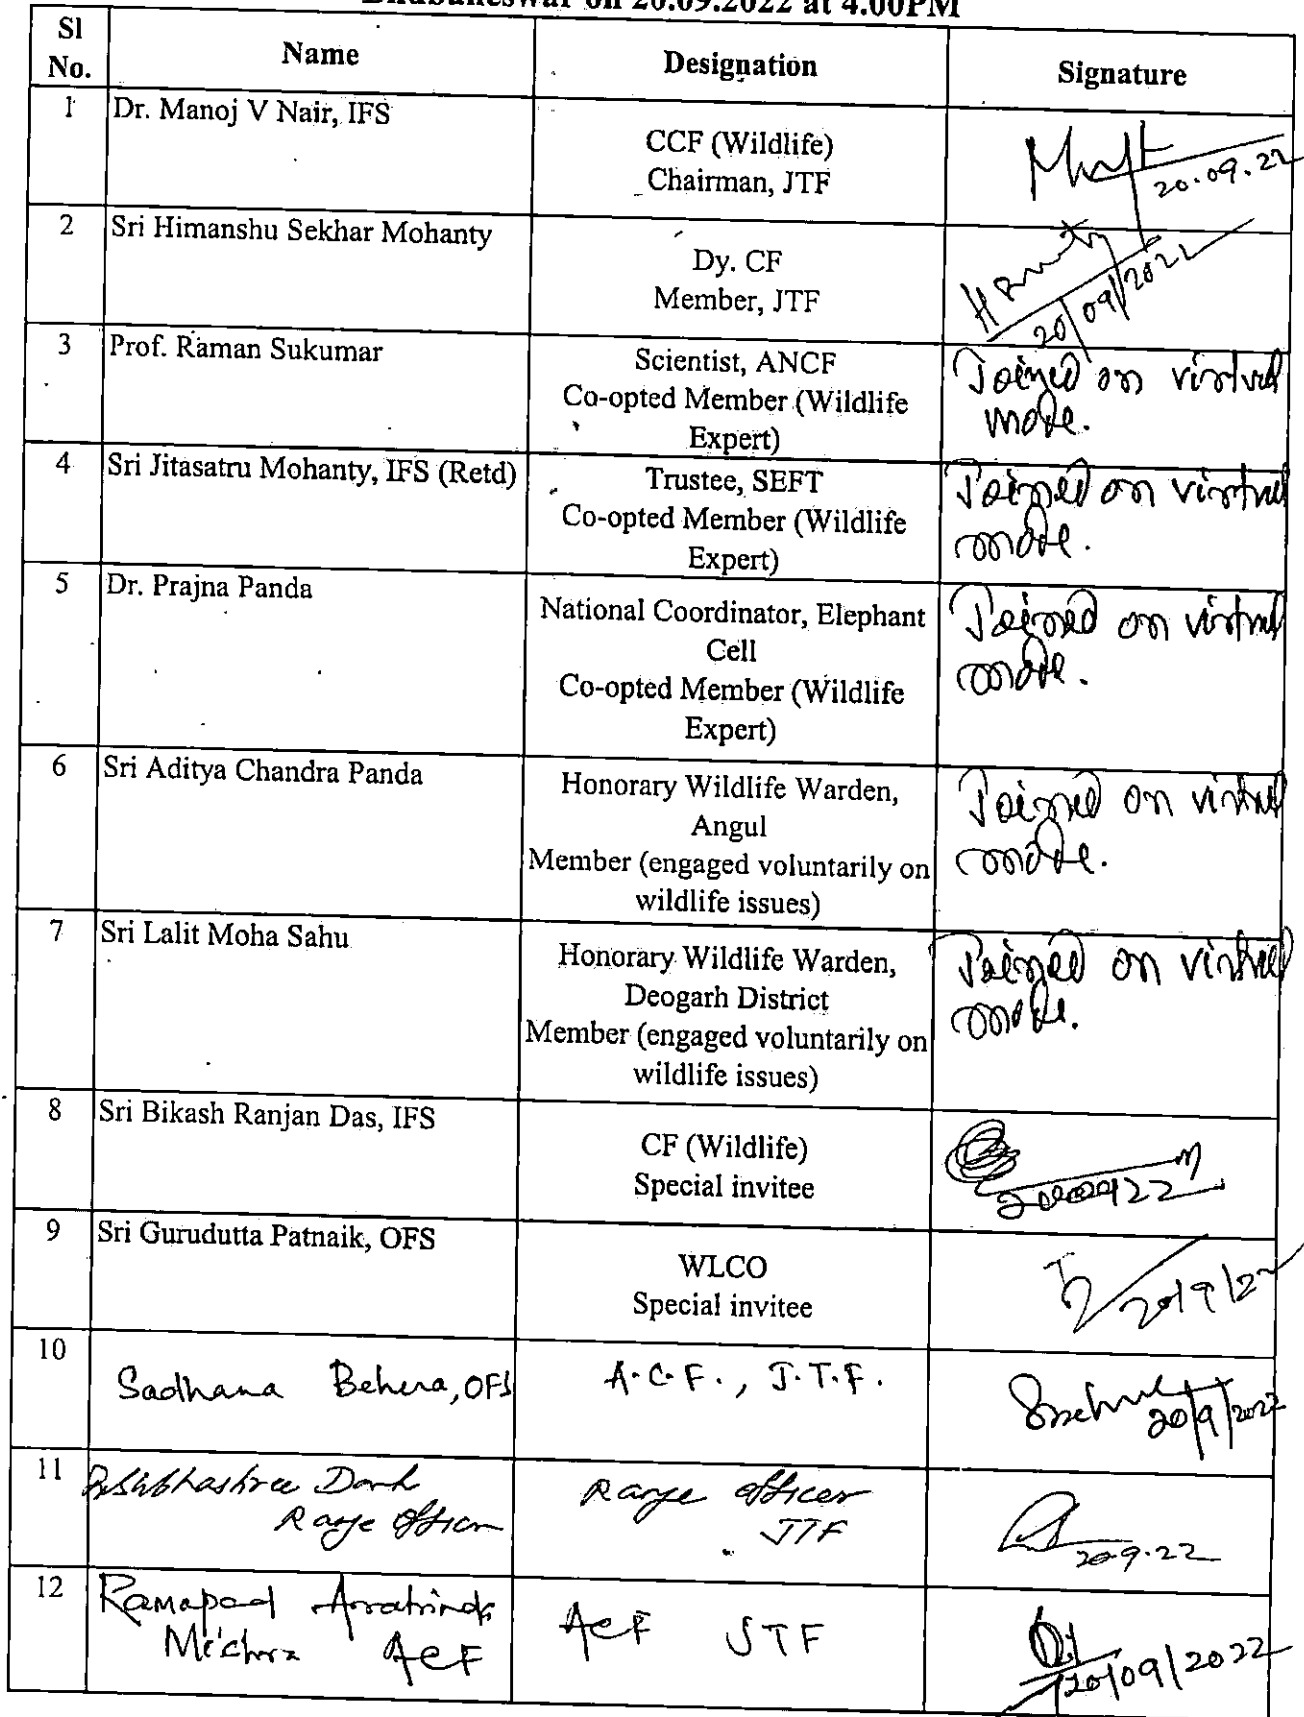 Bhubaneswar on 20.09.2022 at 4.00PM
Sl No. Name Designation Signature
1 Dr. Manoj V Nair, IFS
CCF (Wildlife)
Chairman, JTF
20.09.22
2 Sri Himanshu Sekhar Mohanty
Dy. CF
Member, JTF
20/09/2022
3 Prof. Raman Sukumar
Scientist, ANCF
Co-opted Member (Wildlife
Expert)
Joined on virtual
mode.
4 Sri Jitasatru Mohanty, IFS (Retd)
Trustee, SEFT
Co-opted Member (Wildlife
Expert)
Joined on virtual
mode.
5 Dr. Prajna Panda
National Coordinator, Elephant
Cell
Co-opted Member (Wildlife
Expert)
Joined on virtual
mode.
6 Sri Aditya Chandra Panda
Honorary Wildlife Warden,
Angul
Member (engaged voluntarily on
wildlife issues)
Joined on virtual
mode.
7 Sri Lalit Moha Sahu
Honorary Wildlife Warden,
Deogarh District
Member (engaged voluntarily on
wildlife issues)
Joined on virtual
mode.
8 Sri Bikash Ranjan Das, IFS
CF (Wildlife)
Special invitee
9 Sri Gurudutta Patnaik, OFS
WLCO
Special invitee
20/9/22
10 Sadhana Behera, OFS
A.C.F., J.T.F.
20/9/2022
11
Range Officer
Range Officer
JTF
20.9.22
12 Ramapad
ACF
ACF JTF
20/09/2022